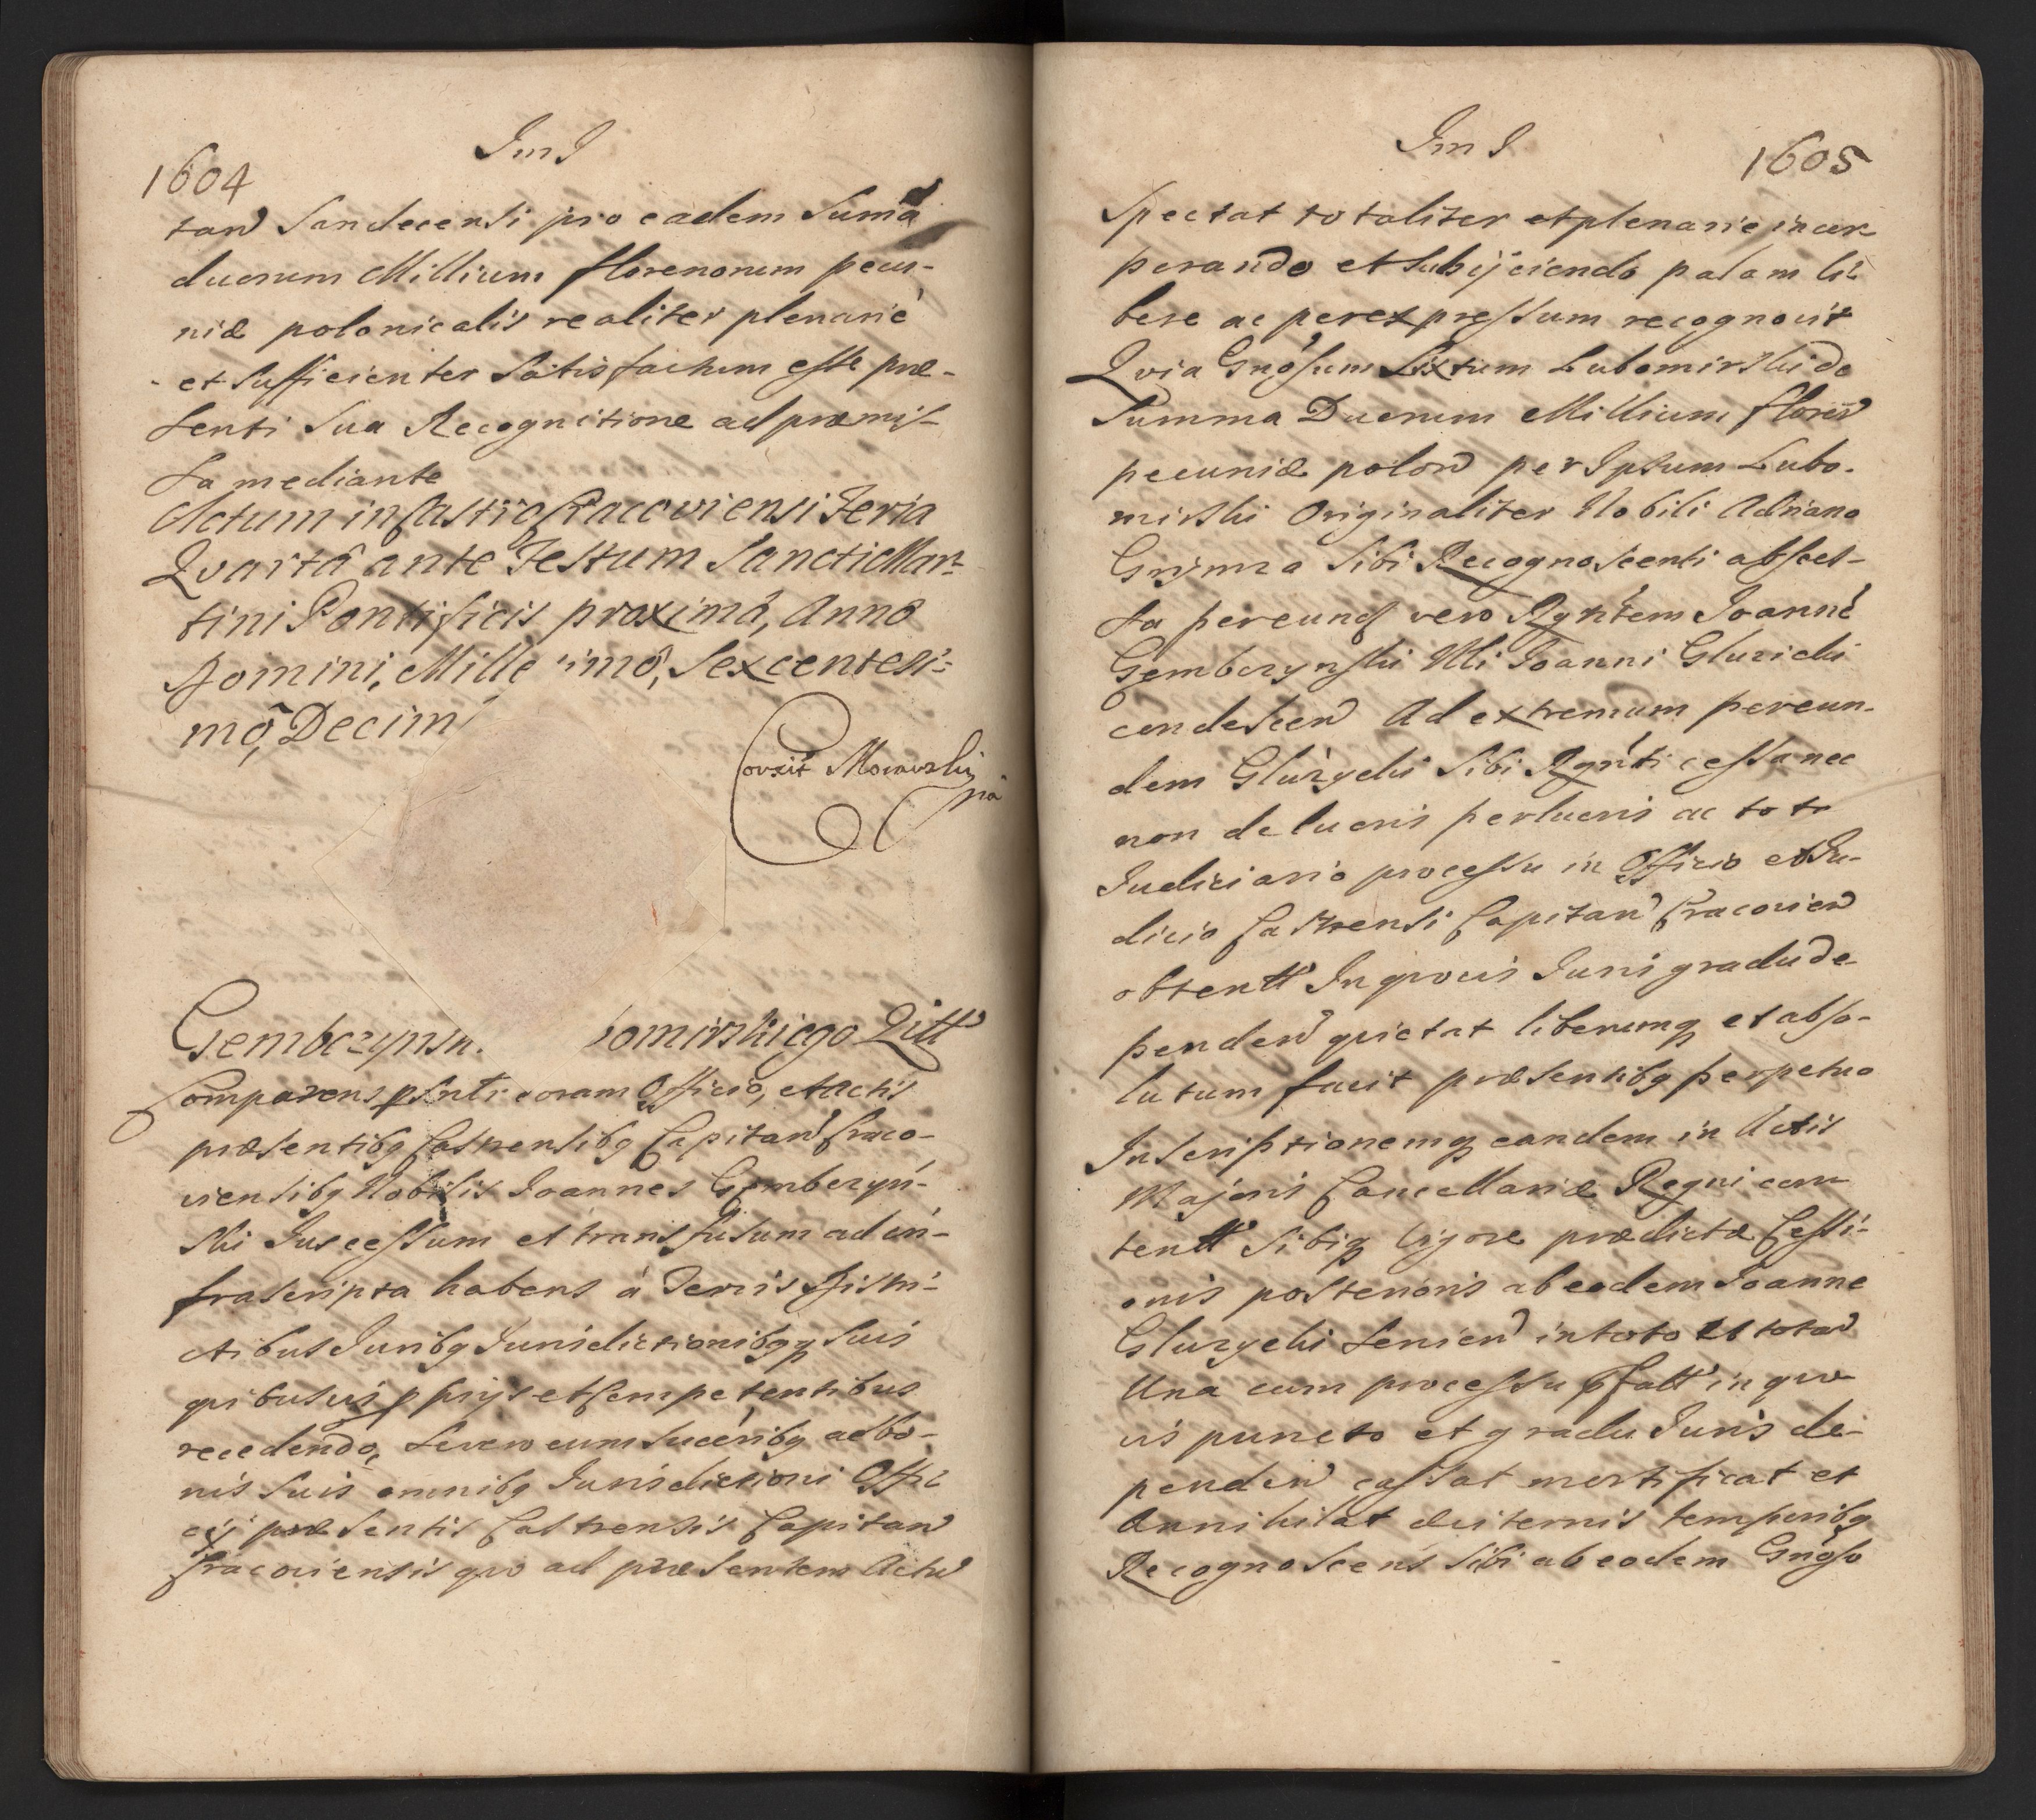 1604
Im I
tan̄ Sandecensi pro eadem Sumā
duorum Millium florenorum pecu-
niæ polonicalis realiter plenarié
et sufficienter satisfactum esse præ-
senti sua Recognitione ad præmis-
sa mediante
Actum in Castro Cracoviensi Feria
Qvartâ ante Festum Sancti Mar-
tini Pontificis proximâ, Anno
Domini, Mille imô, Sexcentesi-
mô, Decim
Corexit Morawski
Gembczynsk. omirskiego Quitt
Comparens psnti coram Officio, et Actis
præsentibq Castrensibq Capitan̄ Craco-
viensibq Nobilis Joannes Gembczyń-
ski Jus cessum et transfusum ad in-
frascripta habens à Terris Distri-
ctibus Juribq Jurisdictionibqq Suis
qvibusvis pprijs et Competentibus
recedendo, Se vero cum Sucoribq ac bo-
nis Suis omnibq Jurisdictioni Offi-
cij præsentis Castrensis Capitan̄
Cracoviensis qvo ad præsentem Actū
Im I
1605
Spectat totaliter et plenarie incor-
porando et Subijciendo palam li-
bere ac per expressum recognovit
Qvia Gnosum Sixtum Lubomirski de
Summa Duorum Millium floren̄
pecuniæ polon̄ per Ipsum Lubo-
mirski Originaliter Nobili Adriano
Grijmza Sibi Recognoscenti
per eund vero Rgntem Joanné
Gembczynski Nli Joanni Gluzicki
condescen̄ Ad extremum per eun-
dem Gluzycki Sibi Rgnti cessa nec
non de lucris perlucris ac toto
Judiciario processu in Officio et Ju-
dicio Castrensi Capitan̄ Cracovien̄
obtentt In qvovis Juris gradu de-
penden̄ qvietat liberumq et abso-
lutum facit præsentibq perpetuo
Inscriptionemq eandem in Actis
Majoris Cancellariæ Regni con-
tentt Sibiq vigore prædictæ Cessi-
onis posterioris ab eodem Joanne
Gluzycki Servien̄ in toto et totan̄
Una cum processu pfatt in qvo-
vis puncto et gradu Juris de-
penden̄ cassat mortificat et
Annihilat æviternis temporibq
Recognoscens Sibi ab eodem Gnoso